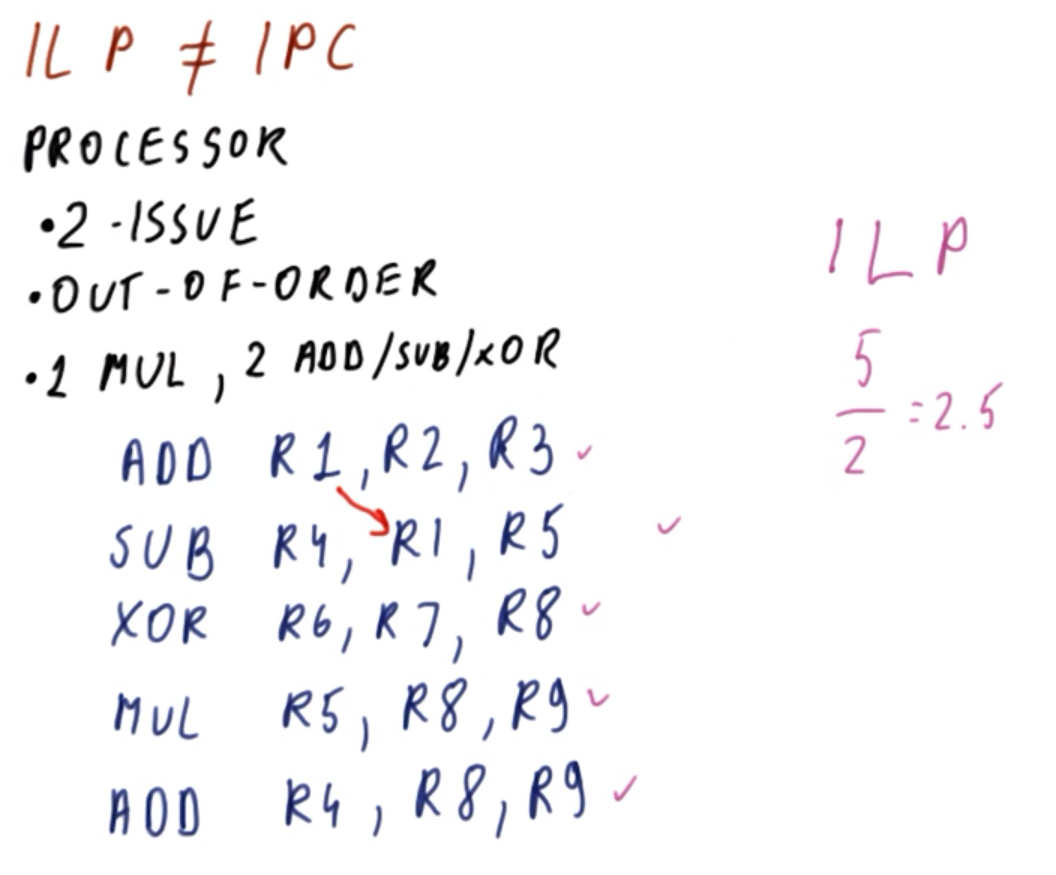 ILP ≠ IPC
PROCESSOR
•2-ISSUE
•OUT-OF-ORDER
•1 MUL, 2 ADD/SUB/XOR
ADD R1, R2, R3 ✓
SUB R4, R1, R5 ✓
XOR R6, R7, R8 ✓
MUL R5, R8, R9 ✓
ADD R4, R8, R9 ✓
ILP
5/2 = 2.5